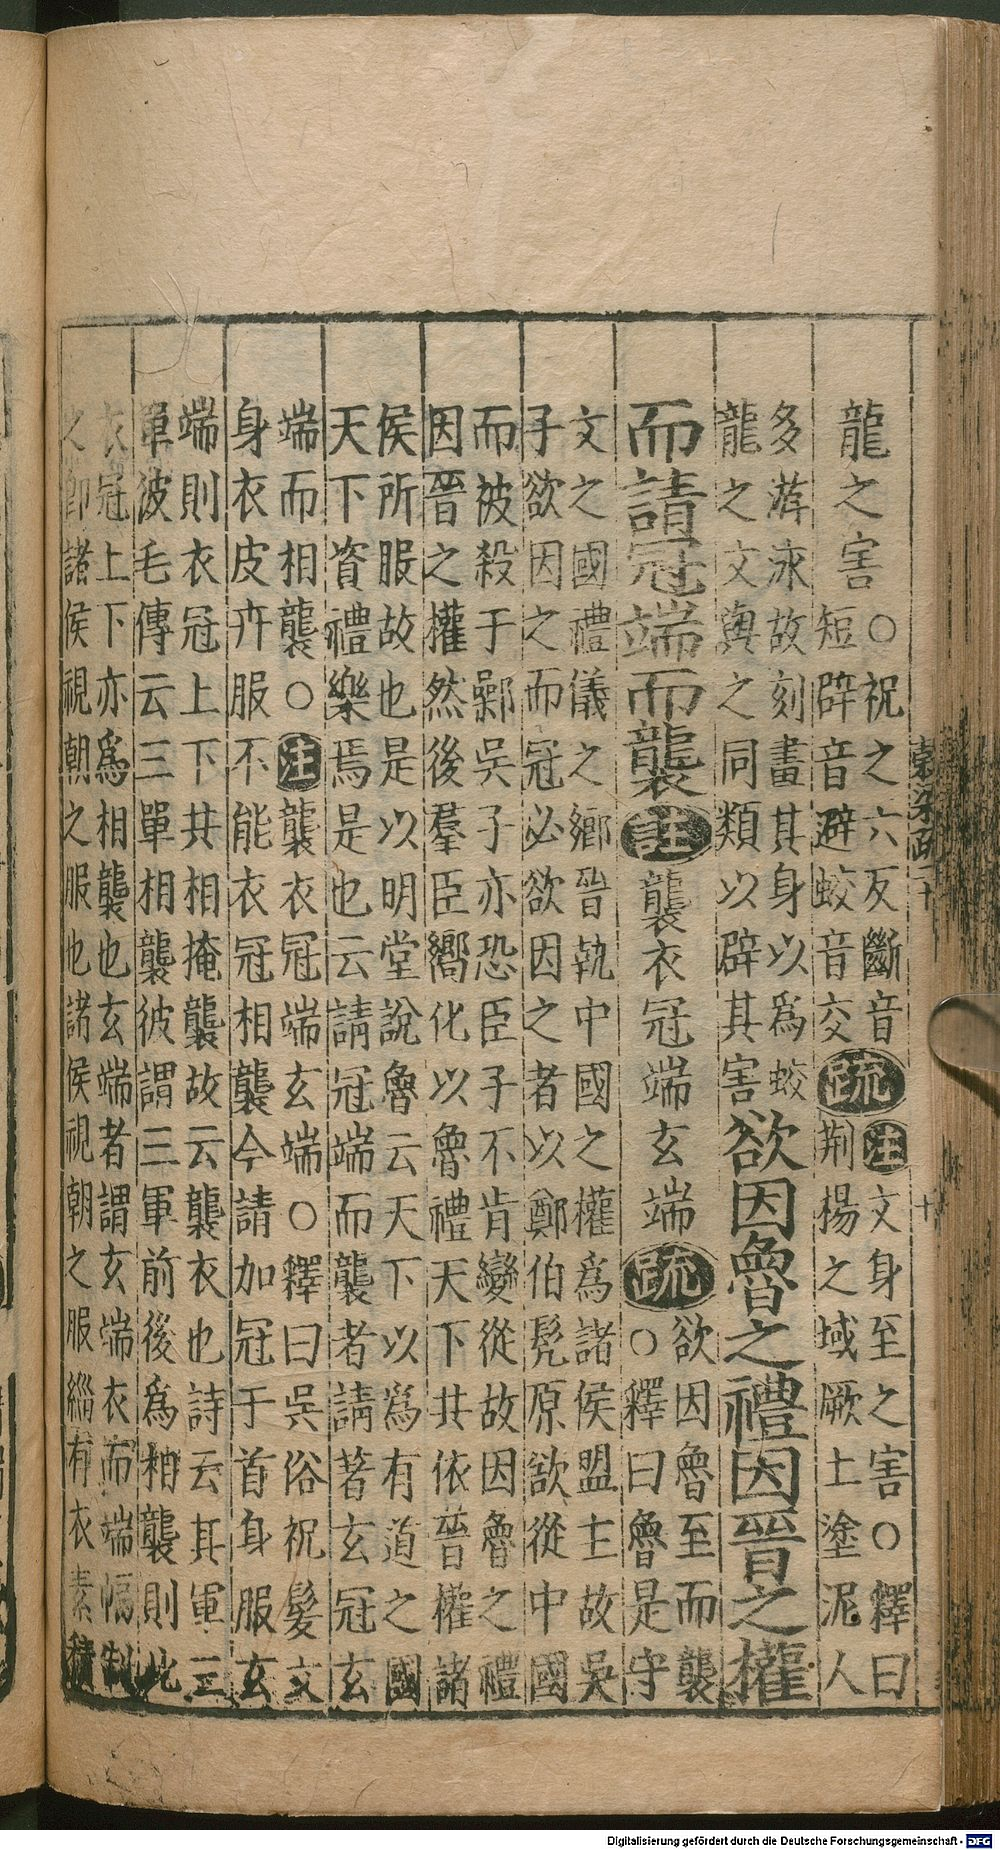 龍之害
○祝之六反斷音
短辟音避蛟音交
疏
注文身至之害○釋曰
荆揚之域厥土塗泥人
多游泳故刻畫其身以爲蛟
龍之文與之同類以辟其害
欲因魯之禮因晉之權
而請冠端而襲
註
襲衣冠端玄端
疏
欲因魯至而襲
○釋曰魯是守
文之國禮儀之鄉晉執中國之權爲諸侯盟主故吳
子欲因之而冠必欲因之者以鄭伯髡原欲從中國
而被殺于鄵吳子亦恐臣子不肯變從故因魯之禮
因晉之權然後羣臣嚮化以魯禮天下共依晉權諸
侯所服故也是以明堂說魯云天下以爲有道之國
天下資禮樂焉是也云請冠端而襲者請著玄冠玄
端而相襲○注襲衣冠端玄端○釋曰吳俗祝髮文
身衣皮卉服不能衣冠相襲今請加冠于首身服玄
端則衣冠上下共相掩襲故云襲衣也詩云其軍三
單彼毛傳云三單相襲彼謂三軍前後爲相襲則此
衣冠上下亦爲相襲也玄端者謂玄端衣而端幅制
之卽諸侯視朝之服也諸侯視朝之服緇布衣素積
十
Digitalisierung gefördert durch die Deutsche Forschungsgemeinschaft - DFG